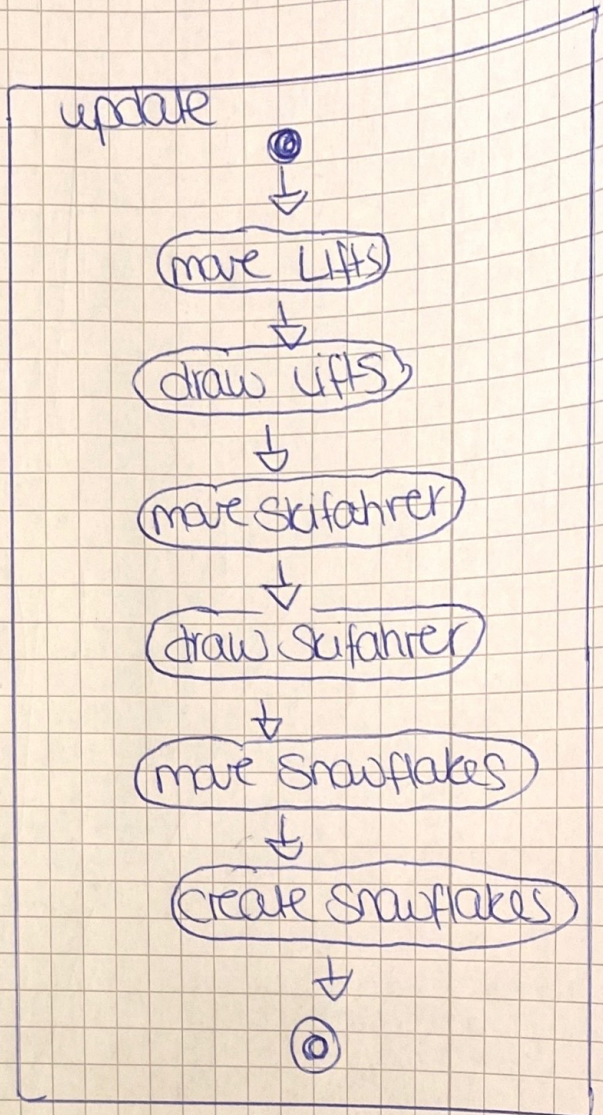 update
move Lifts
draw Lifts
move Skifahrer
draw Skifahrer
move Snowflakes
create Snowflakes